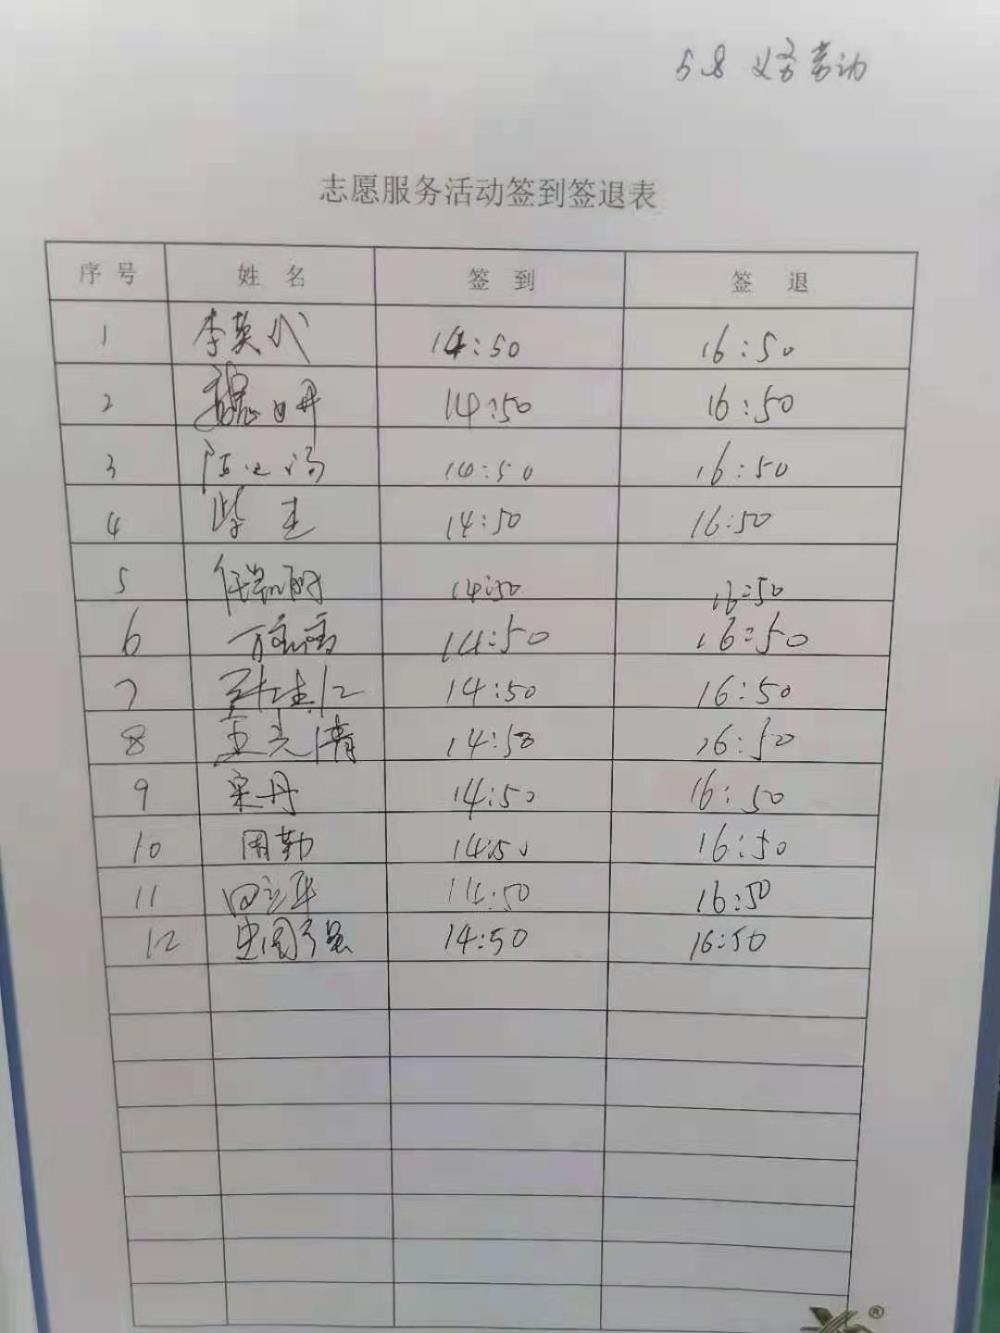 5.8 义务劳动
志愿服务活动签到签退表
序号 姓名 签到 签退
1 李英代 14:50 16:50
2 14:50 16:50
3 14:50 16:50
4 14:50 16:50
5 14:50 16:50
6 14:50 16:50
7 14:50 16:50
8 王克清 14:50 16:50
9 宋丹 14:50 16:50
10 周勤 14:50 16:50
11 14:50 16:50
12 史国强 14:50 16:50
®